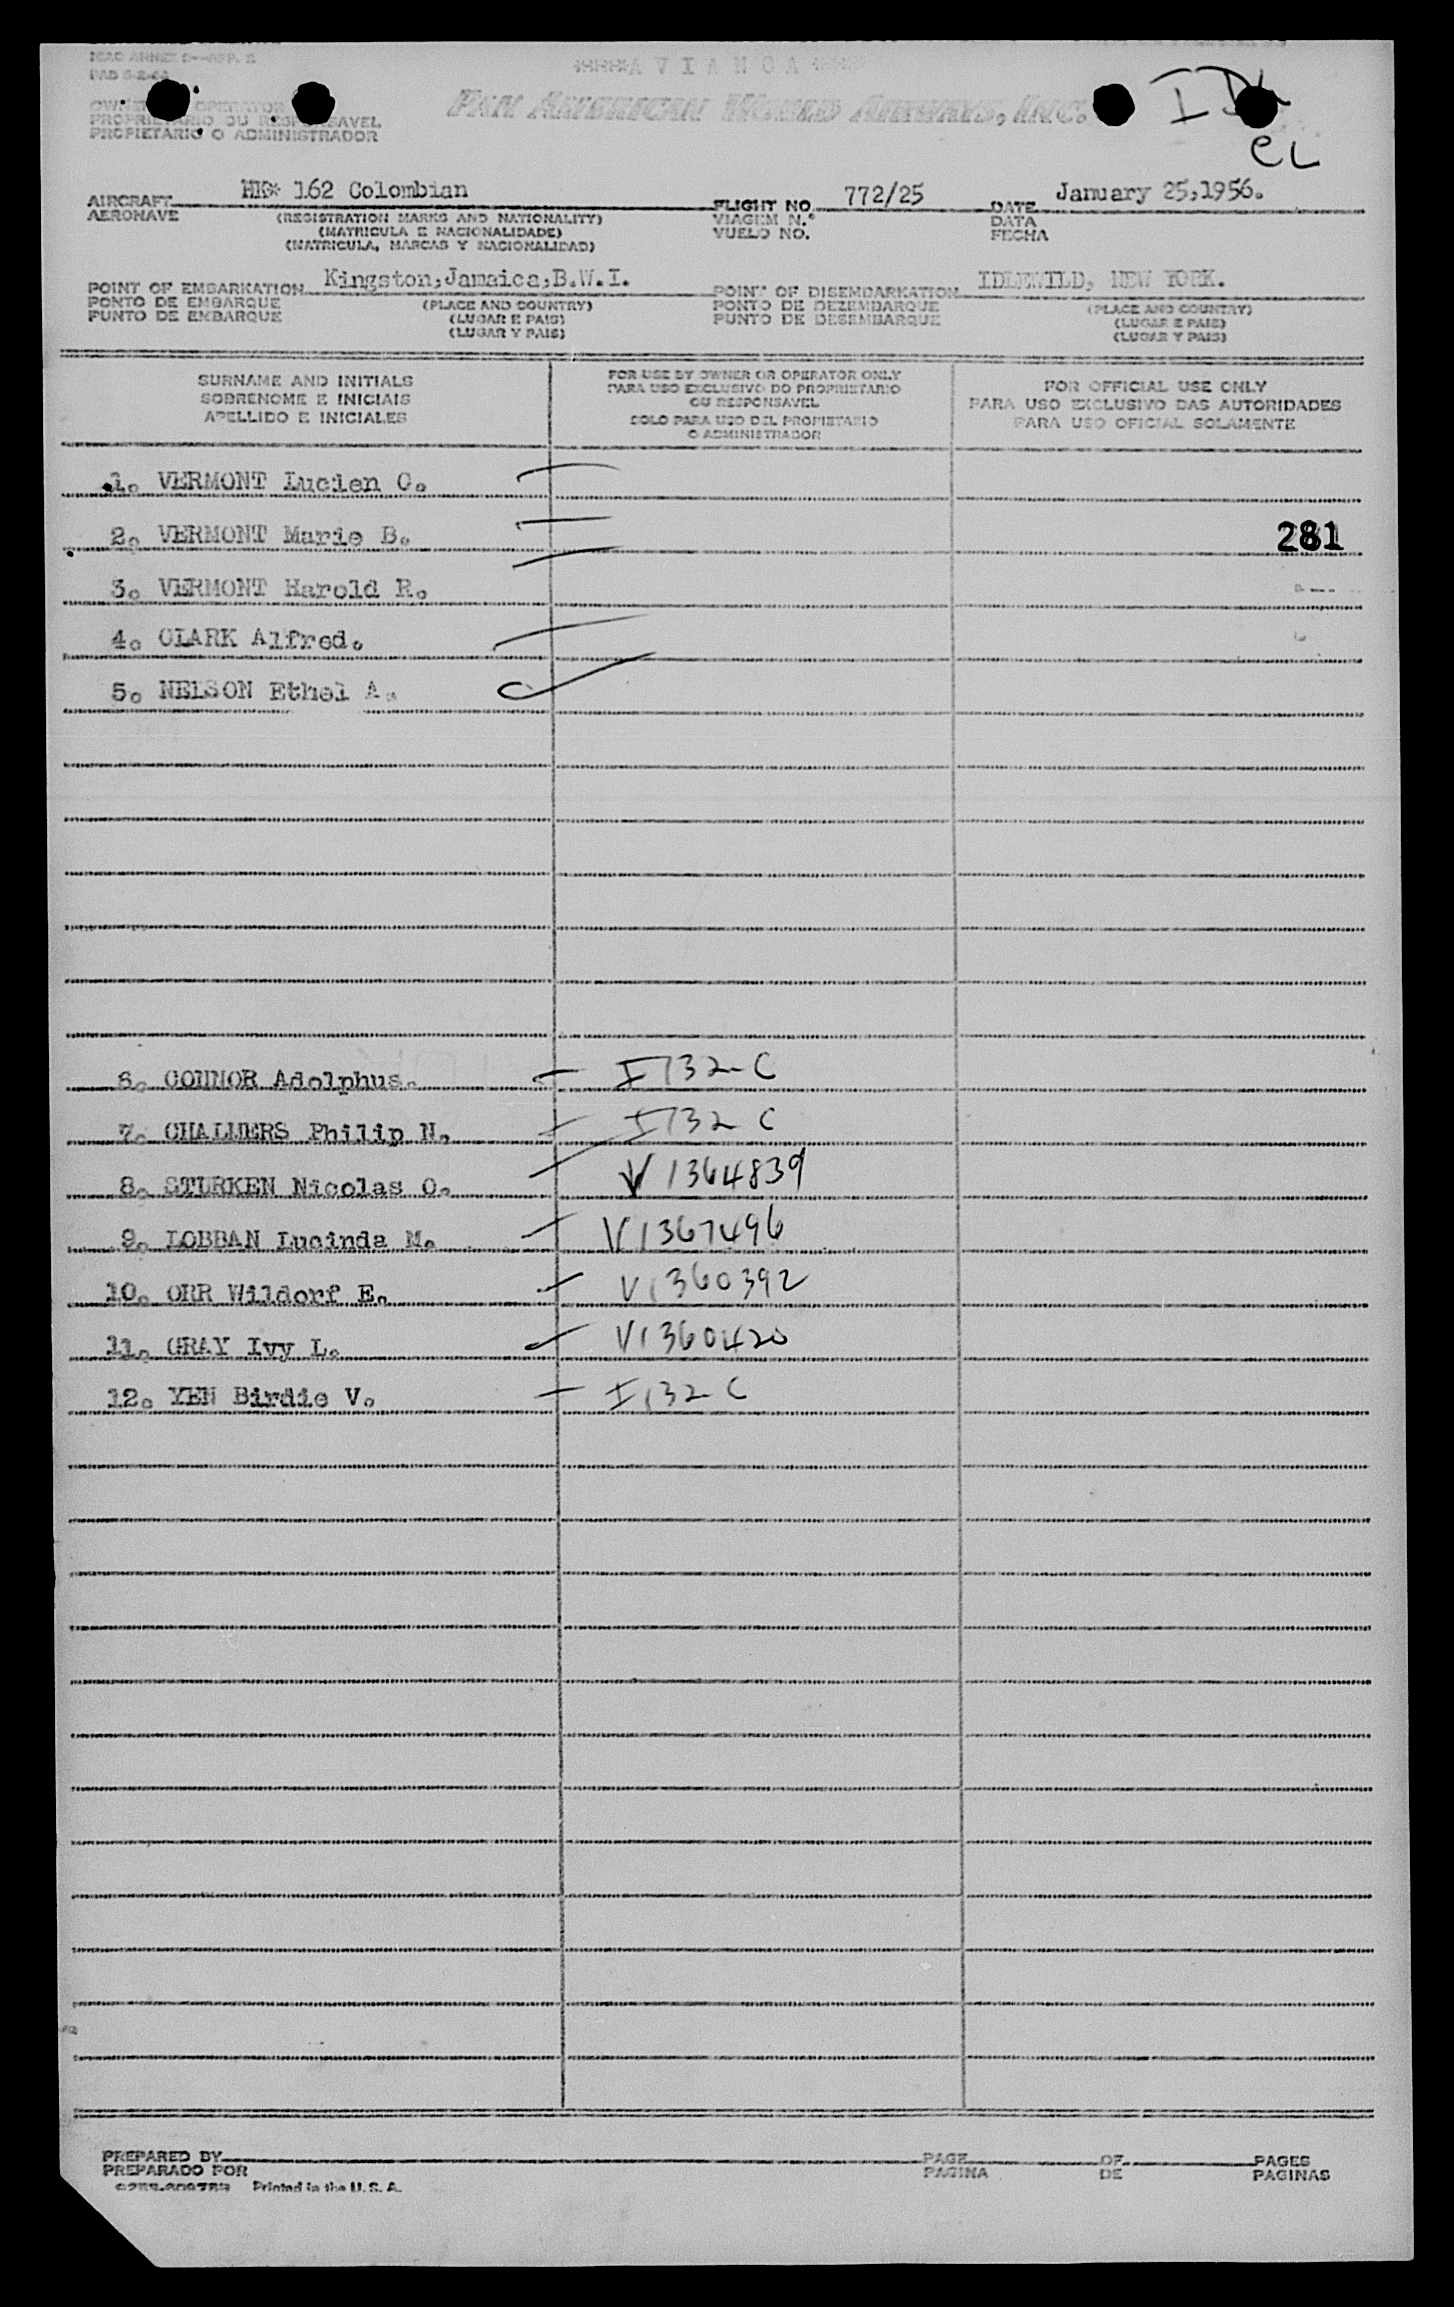 ICAO ANNEX 9—APP. 2
****A V I A N C A ****
PAN AMERICAN WORLD AIRWAYS, INC.
OPERATOR
PROPRIETARIO OU RESPONSAVEL
PROPIETARIO O ADMINISTRADOR
CL
AIRCRAFT HK* 162 Colombian FLIGHT NO. 772/25 DATE January 25,1956.
AERONAVE (REGISTRATION MARKS AND NATIONALITY) VIAGEM N.° DATA
(MATRICULA E NACIONALIDADE) VUELO NO. FECHA
(MATRICULA, MARCAS Y NACIONALIDAD)
POINT OF EMBARKATION Kingston,Jamaica,B.W.I. POINT OF DISEMBARKATION IDLEWILD, NEW YORK.
PONTO DE EMBARQUE (PLACE AND COUNTRY) PONTO DE DEZEMBARQUE (PLACE AND COUNTRY)
PUNTO DE EMBARQUE (LUGAR E PAIS) PUNTO DE DESEMBARQUE (LUGAR E PAIS)
(LUGAR Y PAIS) (LUGAR Y PAIS)
SURNAME AND INITIALS FOR USE BY OWNER OR OPERATOR ONLY FOR OFFICIAL USE ONLY
SOBRENOME E INICIAIS PARA USO EXCLUSIVO DO PROPRIETARIO PARA USO EXCLUSIVO DAS AUTORIDADES
OU RESPONSAVEL
APELLIDO E INICIALES SOLO PARA USO DEL PROPIETARIO PARA USO OFICIAL SOLAMENTE
O ADMINISTRADOR
1. VERMONT Lucien C.
2. VERMONT Marie B. 281
3. VERMONT Harold R.
4. CLARK Alfred.
5. NELSON Ethel A.
6. CONNOR Adolphus. I 132-C
7. CHALMERS Philip N. I 132 C
8. STURKEN Nicolas O. V 1364839
9. LOBBAN Lucinda M. V1367496
10. ORR Wildorf E. V1360392
11. GRAY Ivy L. V1360420
12. YEN Birdie V. I 132 C
PREPARED BY PAGE OF PAGES
PREPARADO POR PAGINA DE PAGINAS
Printed in the U. S. A.